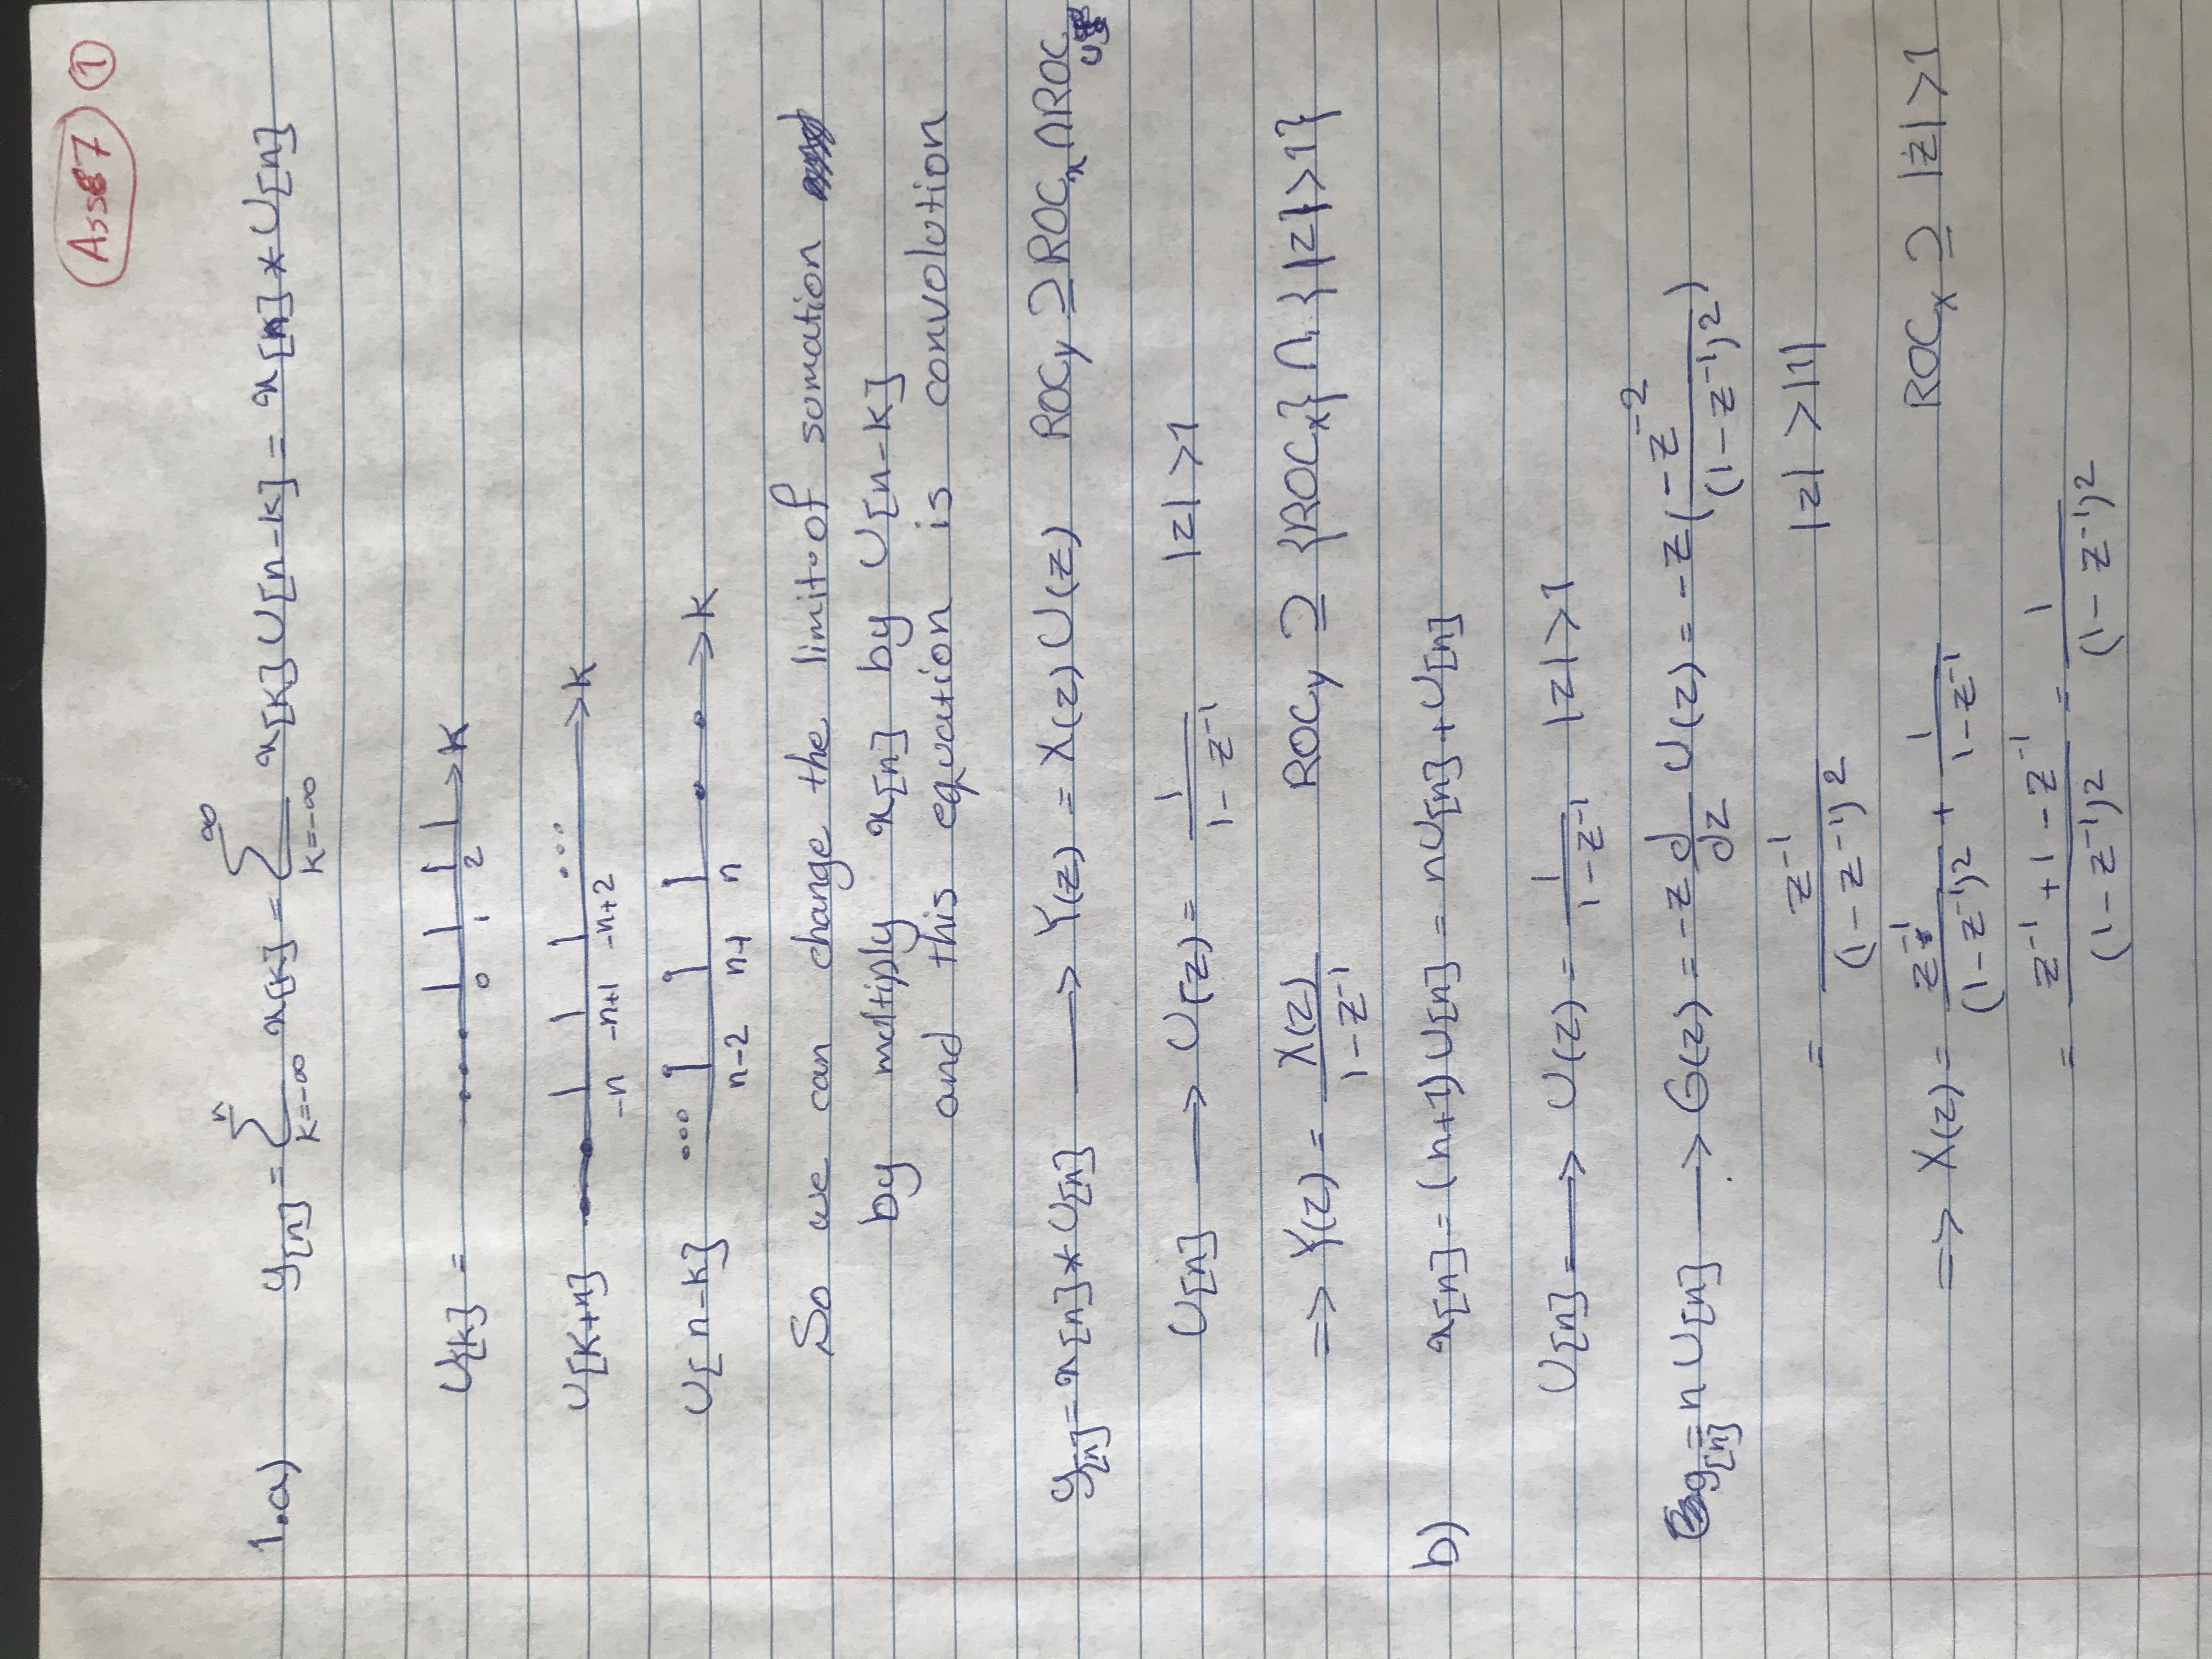 Ass 7 1
1.a) y[n] = Σ_{k=-∞}^{n} x[k] = Σ_{k=-∞}^{∞} x[k] U[n-k] = x[n] * U[n]
U[k] = ... 0 1 2 > k
U[k+n] -n -n+1 -n+2 ... > k
U[n-k] ... n-2 n-1 n > k
So we can change the limit of sumation
by multiply x[n] by U[n-k]
and this equation is convolution
y[n] = x[n] * U[n] → Y(z) = X(z) U(z) ROC_y ⊇ ROC_x ∩ ROC_U
U[n] → U(z) = 1/(1 - z^-1) |z| > 1
=> Y(z) = X(z)/(1 - z^-1) ROC_y ⊇ {ROC_x} ∩ {|z| > 1}
b) x[n] = (n+1) U[n] = nU[n] + U[n]
U[n] → U(z) = 1/(1 - z^-1) |z| > 1
g[n] = n U[n] → G(z) = -z d/dz U(z) = -z (-z^-2/(1 - z^-1)^2)
= z^-1/(1 - z^-1)^2 |z| > |1|
=> X(z) = z^-1/(1 - z^-1)^2 + 1/(1 - z^-1) ROC_x ⊇ |z| > 1
= (z^-1 + 1 - z^-1)/(1 - z^-1)^2 = 1/(1 - z^-1)^2